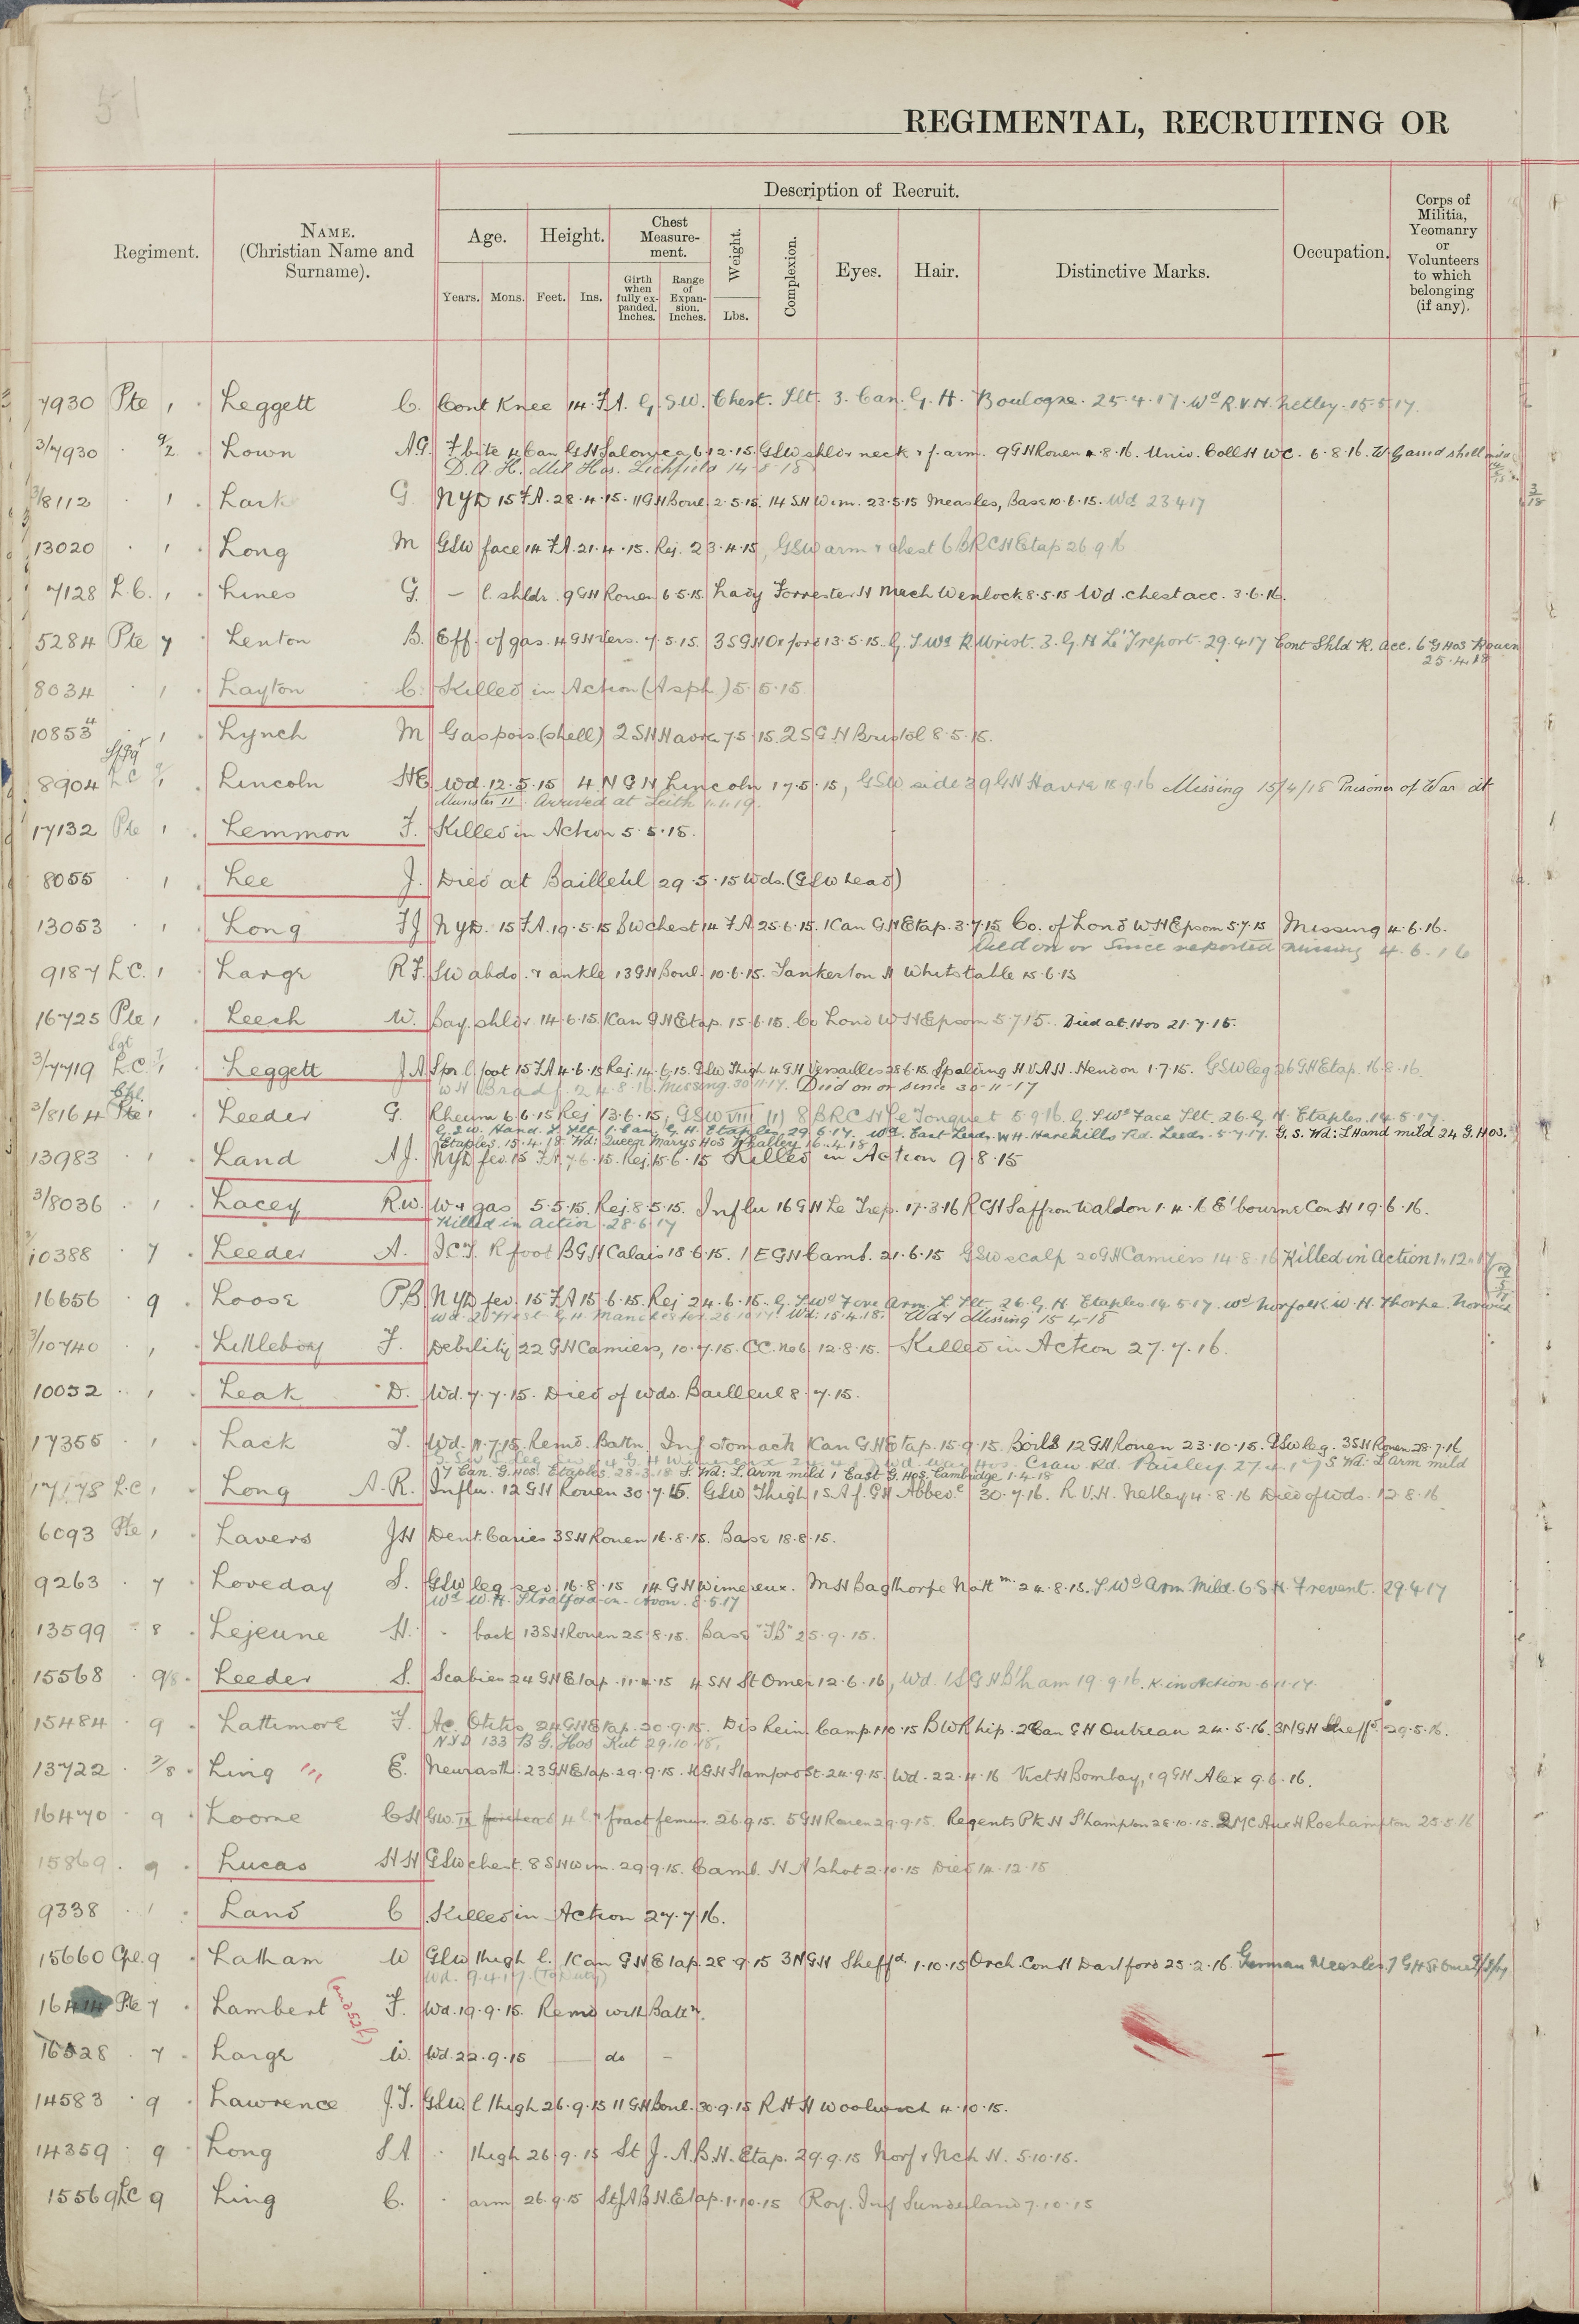 51
REGIMENTAL, RECRUITING OR
Description of Recruit.
Regiment.
NAME.
(Christian Name and
Surname).
Age.
Height.
Chest
Measure-
ment.
Weight.
Complexion.
Eyes.
Hair.
Distinctive Marks.
Occupation.
Corps of
Militia,
Yeomanry
or
Volunteers
to which
belonging
(if any).
Years.
Mons.
Feet.
Ins.
Girth
when
fully ex-
panded.
Inches.
Range
of
Expan-
sion.
Inches.
Lbs.
7930 Pte 1 Leggett C. Cont Knee 14.F.A. G.S.W. Chest. Slt. 3. Can. G. H. Boulogne. 25.4.17. Wd R.V.H. Netley. 15.5.17.
3/7930 9/2 Lown A.G. F bite 4 Can G H Salonica 6.12.15. GSW shldr neck & f. arm. 9 G H Rouen 4.8.16. Univ. Coll H W C. 6.8.16. W Gassd shell
D. A. H. Mil Hos. Lichfield 14.8.18
3/8112 1 Lark G NYD 15 F.A. 28.4.15. 11 G H Boul. 2.5.15. 14 S H Wim. 23.5.15 Measles, Base 10.6.15. Wd 23.4.17
13020 1 Long M GSW face 14 F.A. 21.4.15. Rej. 23.4.15, GSW arm & chest 6 BRCH Etap 26.9.16
7128 L.C. 1 Lines G. – l. shldr. 9 G H Rouen 6.5.15. Lady Forrester H Much Wenlock 8.5.15 Wd. chest acc. 3.6.16.
5284 Pte 7 Lenton B. Eff. of gas. 4 G H Vers. 7.5.15. 3 S G H Oxford 13.5.15. G. S Wd R. Wrist. 3. G. H Le Treport. 29.4.17 Cont Shld R. acc. 6 G Hos Rouen
25.4.18
8034 1 Layton C. Killed in Action (Asph.) 5.5.15
10853 4 1 Lynch M Gas pois (shell) 2 S H Havre 7.5.15. 2 S G H Bristol 8.5.15.
8904 L C 1 Lincoln H E Wd. 12.5.15 4 N G H Lincoln 17.5.15, GSW side 39 G H Havre 18.9.16 Missing 15/4/18 Prisoner of War at
Munster II. Arrived at Leith 1.1.19.
17132 Pte 1 Lemmon F. Killed in Action 5.5.15.
8055 1 Lee J. Died at Bailleul 29.5.15 Wds. (GSW head)
13053 1 Long F J NYD. 15 F.A. 19.5.15 BW chest 14 F A 25.6.15. 1 Can G H Etap. 3.7.15 Co. of Lond W H Epsom 5.7.15 Missing 4.6.16.
Died on or since reported missing 4.6.16
9187 L C. 1 Large R F. SW abdo. & ankle 13 G H Boul. 10.6.15. Tankerton H Whitstable 15.6.15
16725 Pte 1 Leech W. Bay. shldr. 14.6.15. 1 Can G H Etap. 15.6.15. Co Lond W H Epsom 5.7.15. Died at Hos 21.7.15.
3/7719 L.C. 1 Leggett J A Spr. l. foot 15 F A 4.6.15 Rej. 14.6.15. GSW Thigh 4 G H Versailles 28.6.15. Spalding H V A H. Hendon 1.7.15. GSW leg 26 G H Etap. 16.8.16.
W H Bradf. 24.8.16. Missing. 30.11.17. Died on or since 30-11-17
3/8164 Pte 1 Leeder G. Rheum 6.6.15 Rej 13.6.15, GSW VIII (1) 8 BRCH Le Touquet 5.9.16. G. S Wd Face Slt. 26. G H. Etaples. 14.5.17.
G.S.W. Hand. L Slt. 1. Can. G. H. Etaples. 29.6.17. Wd. East Leeds. W H. Harehills Rd. Leeds. 5.7.17. G. S. Wd: L Hand mild 24 G. Hos.
Etaples. 15.4.18. Wd: Queen Marys Hos Whalley 16.4.18
13983 1 Land A J. NYD fev. 15 F A 7.6.15. Rej. 15.6.15 Killed in Action 9.8.15
3/8036 1 Lacey R.W. W & gas 5.5.15. Rej. 8.5.15. Influ 16 G H Le Trep. 17.3.16 R C H Saffron Waldon 1.4.16 E'bourne Con H 19.6.16.
Killed in action 28.6.17
10388 7 Leeder A. I.C.T. R foot B G H Calais 18.6.15. 1 E G H Camb. 21.6.15 GSW scalp 20 G H Camiers 14.8.16 Killed in action 1.12.17
16656 9 Loose P.B NYD fev. 15 F A 15.6.15. Rej 24.6.15. G. S Wd Fore Arm. L Slt. 26. G. H. Etaples 14.5.17. Wd Norfolk W. H. Thorpe. Norwich
Wd: 15.4.18. Wd & Missing 15-4-18
3/10740 1 Littleboy F. Debility 22 G H Camiers, 10.7.15. C C. No 6 12.8.15. Killed in Action 27.7.16.
10052 1 Leak D. Wd. 7.7.15. Died of wds. Bailleul 8.7.15.
17355 1 Lack T. Wd. 11.7.15. Remd. Battn. Inf stomach 1 Can G H Etap. 15.9.15. Boils 12 G H Rouen 23.10.15. GSW leg. 3 S H Rouen 28.7.16
Craw Rd. Paisley. 27.4.17 S Wd: L Arm mild
7 Can. G. Hos. Etaples 28-3.18 S. Wd: L. Arm mild 1 East G. Hos. Cambridge 1-4-18
17178 L.C 1 Long A. R. Influ. 12 G H Rouen 30.7.15. GSW Thigh 1 S Af. G H Abbevle 30.7.16. R V.H. Netley 4.8.16 Died of wds. 12.8.16
6093 Pte 1 Lavers J H Dent. Caries 3 S H Rouen 16.8.15. Base 18.8.15.
9263 7 Loveday S. GSW leg sev. 16.8.15 14 G H Wimereux. M H Bagthorpe Nottm. 24.8.15. S Wd Arm Mild. 6 S. H. Frevent. 29.4.17
Wd W. H. Stratford-on-Avon. 8.5.17
13599 8 Lejeune H. back 13 S H Rouen 25.8.15. Base "TB" 25.9.15.
15568 9/8 Leeder S. Scabies 24 G H Etap. 11.4.15 4 S H St Omer 12.6.16, Wd 1 S G H B'ham 19.9.16. K. in Action. 6.11.17.
15484 9 Lattimore F. Ac. Otitis 24 G H Etap. 20.9.15. Dis Rein. Camp 1.10.15 B W R hip. 2 Can G H Outreau 24.5.16. 3 N G H Sheffd. 29.5.16.
NYD 133 B G. Hos Kut 29.10.18.
13722 7/8 Ling E. Neurasth: 23 G H Etap. 29.9.15. K G H Stamford St. 24.9.15. Wd. 22.4.16 Vict H Bombay, 19 G H Alex 9.6.16.
16470 9 Loome C H G W. IX forehead 4 l & fract femur 26.9.15. 5 G H Rouen 29.9.15. Regents Pk H S'hampton 28.10.15. 2 M C Aux H Roehampton 25.5.16
15869 9 Lucas H H GSW chest. 8 S H Wim. 29.9.15. Camb. H A'shot 2.10.15 Died 14.12.15
9338 1 Land C Killed in Action 27.7.16.
15660 Cpl. 9 Latham W GSW thigh l. 1 Can G H Etap. 28.9.15 3 N G H Sheffd 1.10.15 Orch. Con H Dartford 25.2.16. German Measles. 7 G H St Omer
Wd. 9.4.17. (To Duty)
16414 Pte 7 Lambert F. Wd. 19.9.15. Remd with Battn.
16528 7 Large W. Wd. 22.9.15 — do –
14583 9 Lawrence J.T. GSW. l thigh 26.9.15 11 G H Boul. 30.9.15 R H H Woolwich 4.10.15.
14359 9 Long S A thigh 26.9.15 St J. A. B. H. Etap. 29.9.15 Norf & Nch H. 5.10.15.
15569 LC 9 Ling C. arm 26.9.15 St J A B H. Etap. 1.10.15 Roy. Inf Sunderland 7.10.15